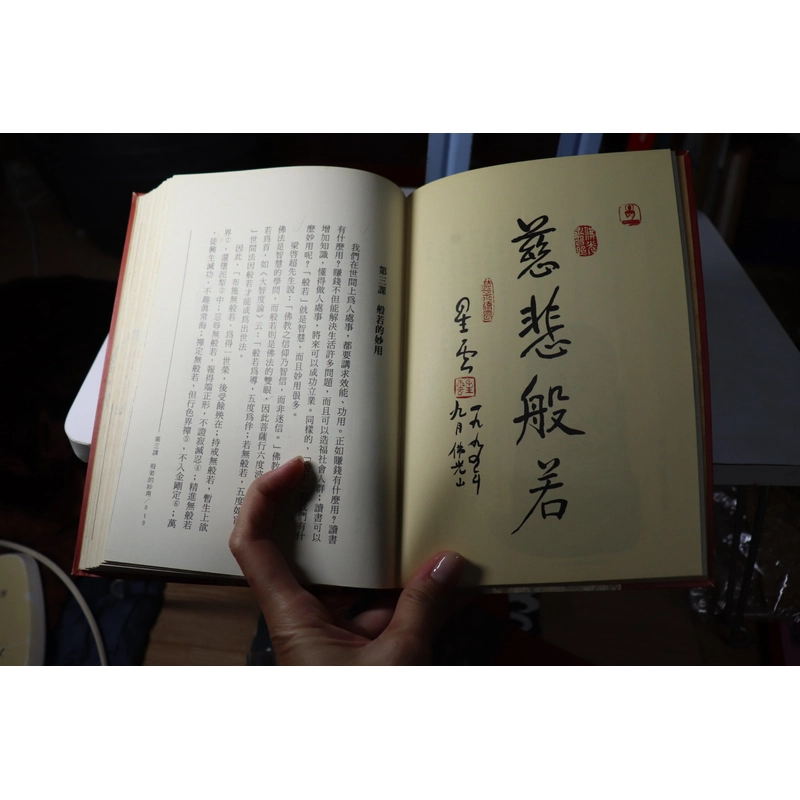 慈悲般若
星雲
一九九五年
九月佛光山
第三課 般若的妙用
我們在世間上為人處事，都要講求效能、功用。正如賺錢有什麼用？讀書
有什麼用？賺錢不但能解決生活許多問題，而且可以造福社會人群；讀書可以
增加知識，懂得做人處事，將來可以成功立業。同樣的，「 們有什
麼妙用呢？「般若」就是智慧，而且妙用很多。
梁啟超先生說：「佛教之信仰乃智信，而非迷信。」佛教
佛法是智慧的學問，而般若則是佛法的雙眼，因此菩薩行六度波
若為首，如《大智度論》云：「般若為導，五度為伴；若無般若，五度如盲
」世間法因般若才能成為出世法。
因此，「布施無般若，為得一世榮，後受餘殃在；持戒無般若，暫生上欲
界，還墮泥犁中；忍辱無般若，報得端正形，不證寂滅忍④；精進無般若
，徒興生滅功，不趣真常海；禪定無般若，但行色界禪⑤，不入金剛定⑥；萬
第三課 般若的妙用